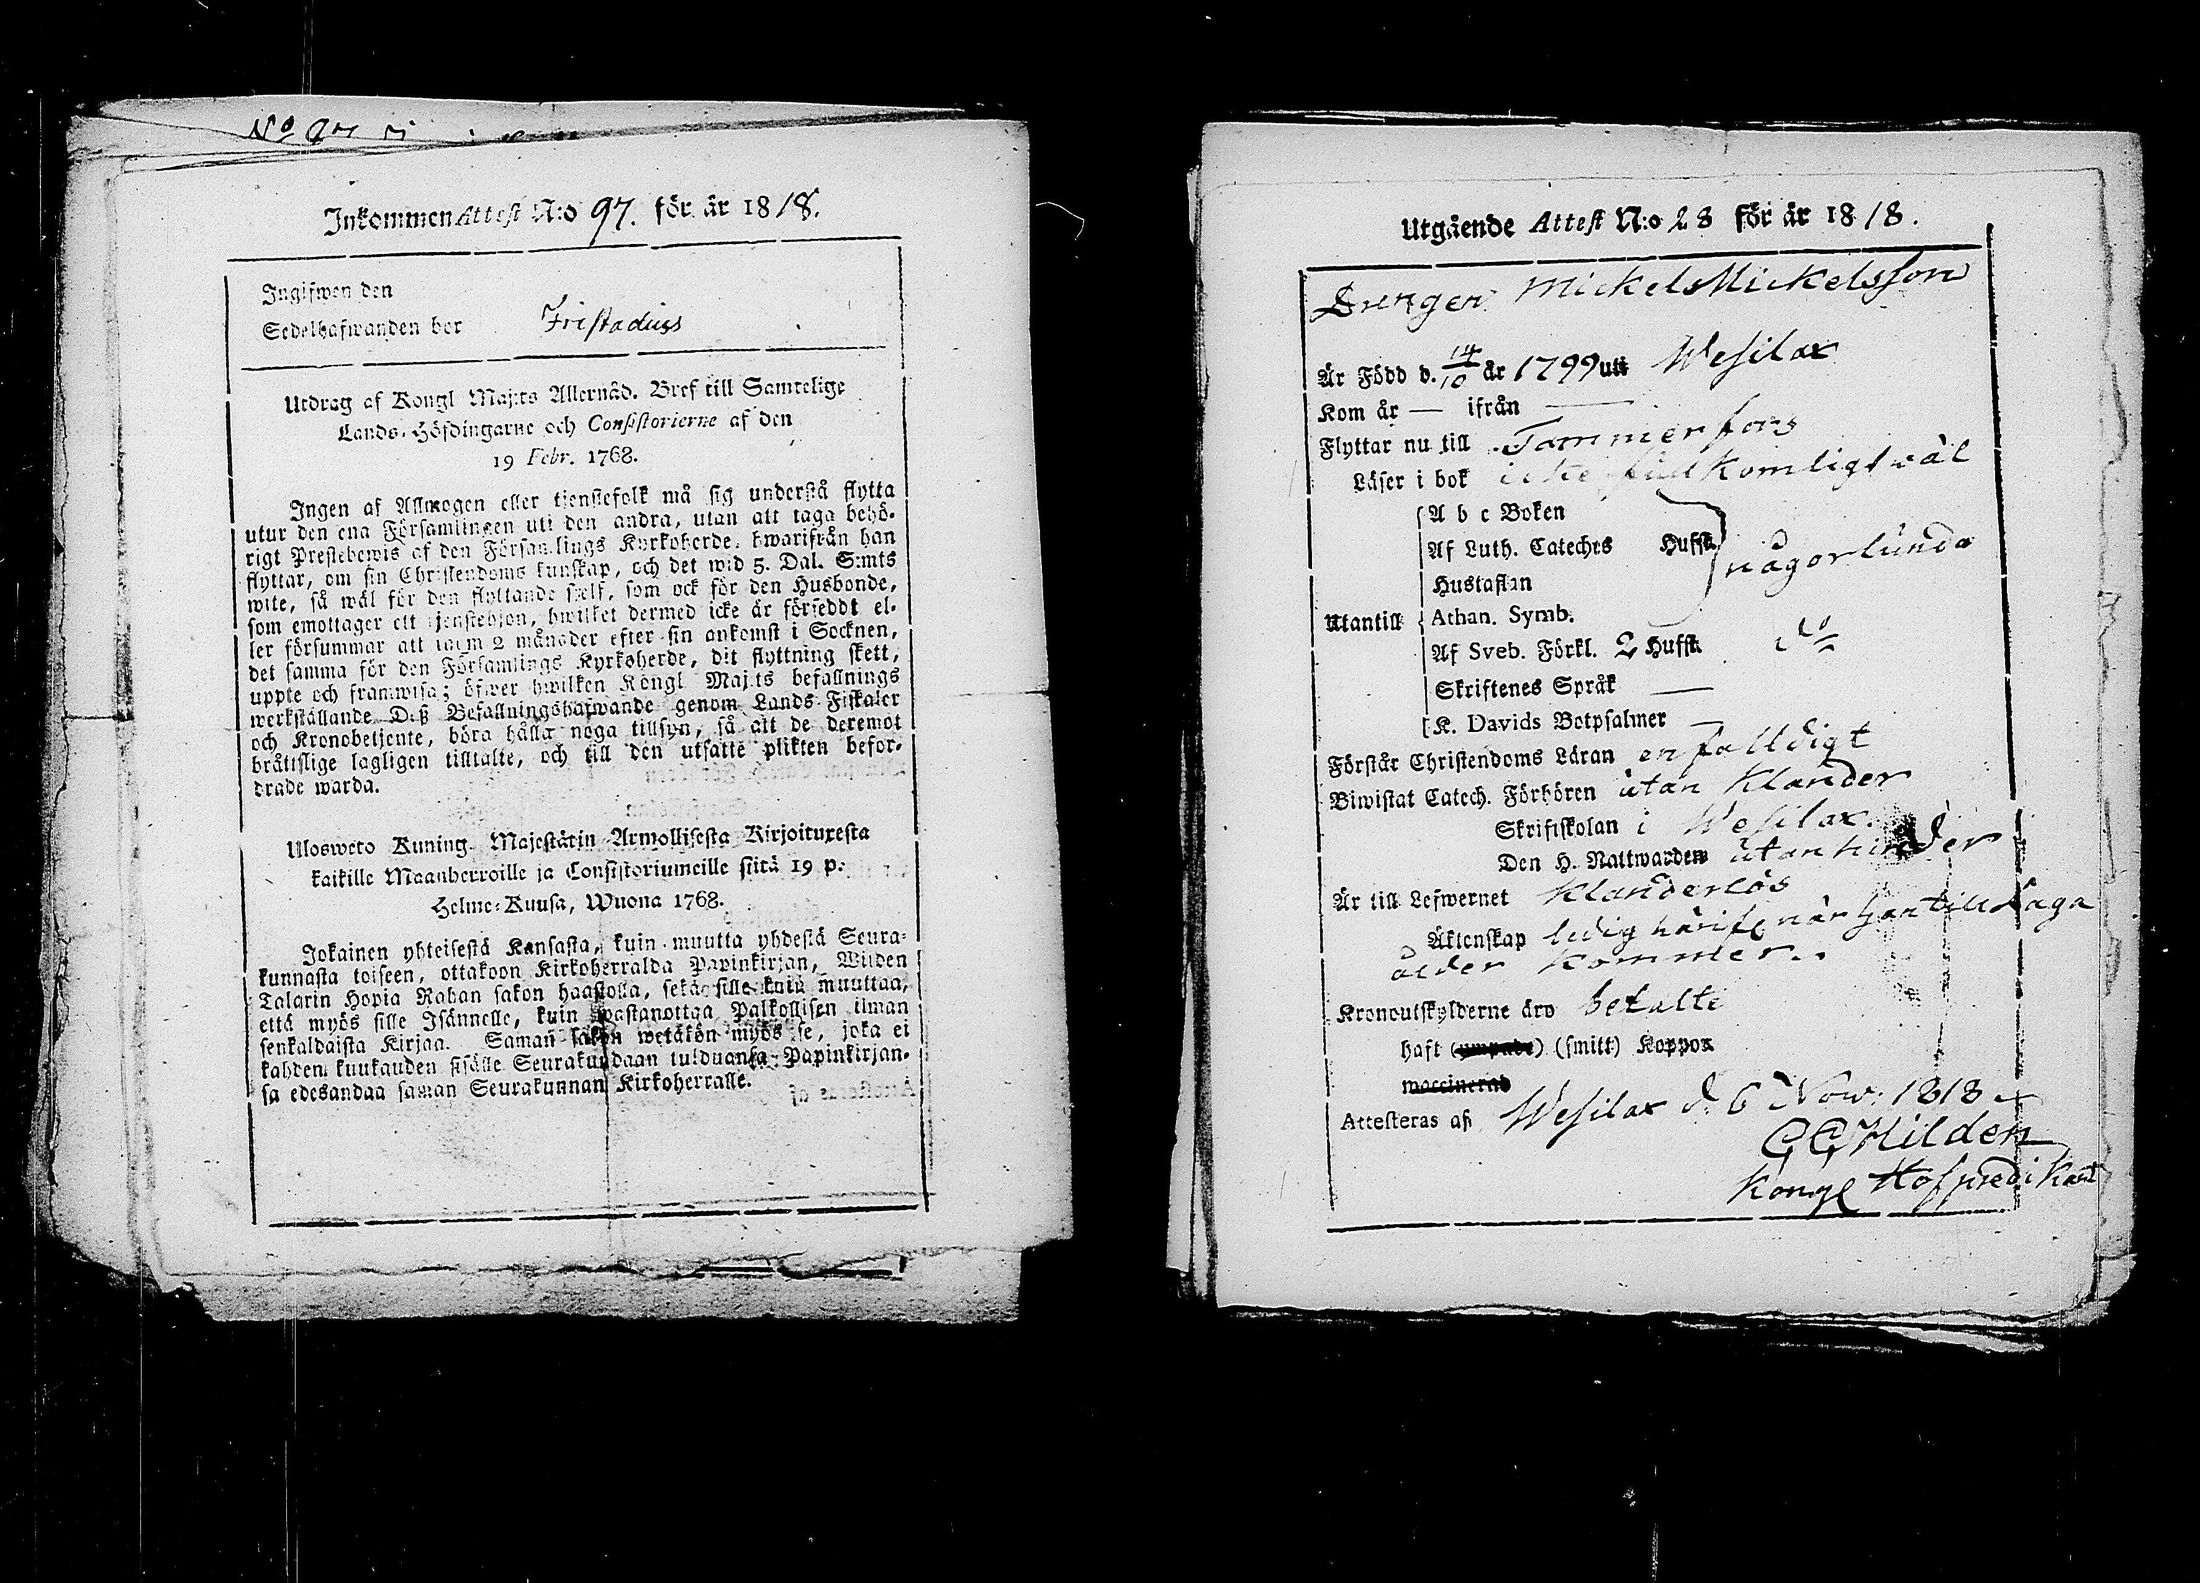 No 97
Inkommen Attest N:o 97. för år 1818.
Ingifwen den
Sedelhafwanden bor Fristaduss
Utdrag af Kongl Maj:ts Allernåd. Bref till Samtelige
Lands-Höfdingarne och Consistorierne af den
19 Febr. 1768.
Ingen af Allmogen eller tjenstefolk må sig understå flytta
utur den ena Församlingen uti den andra, utan att taga behö-
rigt Prestebewis af den Församlings Kyrkoherde, hwarifrån han
flyttar, om sin Christendoms kunskap, och det wid 5. Dal. S:mts
wite, så wäl för den flyttande sjelf, som ock för den Husbonde,
som emottager ett tjenstehjon, hwilket dermed icke är försedt el-
ler försummar att inom 2 månader efter sin ankomst i Socknen,
det samma för den Församlings Kyrkoherde, dit flyttning skett,
uppte och framwisa; öfwer hwilken Kongl Maj:ts befallnings
werkställande Deß Befallningshafwande genom Lands-Fiskaler
och Kronobetjente, böra hålla noga tillsyn, så att de deremot
bråttslige lagligen tilltalte, och till den utsatte plikten befor-
drade warda.
Ulosweto Kuning. Majestätin Armollisesta Kirjoituxesta
kaikille Maanherroille ja Consistoriumeille siitä 19 p:
Helme-Kuusa, Wuona 1768.
Jokainen yhteisestä Kansasta, kuin muutta yhdestä Seura-
kunnasta toiseen, ottakoon Kirkoherralda Papinkirjan, Wijden
Talarin Hopia Rahan sakon haastolla, sekä sille kuin muuttaa,
että myös sille Isännelle, kuin wastanottaa Palkollisen ilman
senkaldaista Kirjaa. Saman sakon wetäkön myös se, joka ei
kahden kuukauden sisälle Seurakundaan tulduansa Papinkirjan-
sa edesandaa saman Seurakunnan Kirkoherralle.
Utgående Attest N:o 28 för år 1818.
Drengen Mickel Mickelsson
Är Född d. 14/10 år 1799 uti Wesilax
Kom år — ifrån —
Flyttar nu till Tammerfors
Läser i bok icke fullkomligt wäl
A b c Boken
Af Luth. Cateches Hufst. någorlunda
Hustaflan
Utantill Athan. Symb.
Af Sveb. Förkl. 2 Hufst. do
Skriftenes Språk —
K. Davids Botpsalmer —
Förstår Christendoms Läran enfalldigt
Biwistat Catech. Förhören utan klander
Skriftskolan i Wesilax.
Den H. Nattwarden utan hinder
Är till Lefwernet klanderlös
Äktenskap ledig härifr när han till laga
ålder kommer.
Kronoutskylderne äro betalte
haft (ympade) (smitt) Koppor
vaccinerad
Attesteras af Wesilax d. 6 Now. 1818
C C Hilden
Kongl Hofpredikant